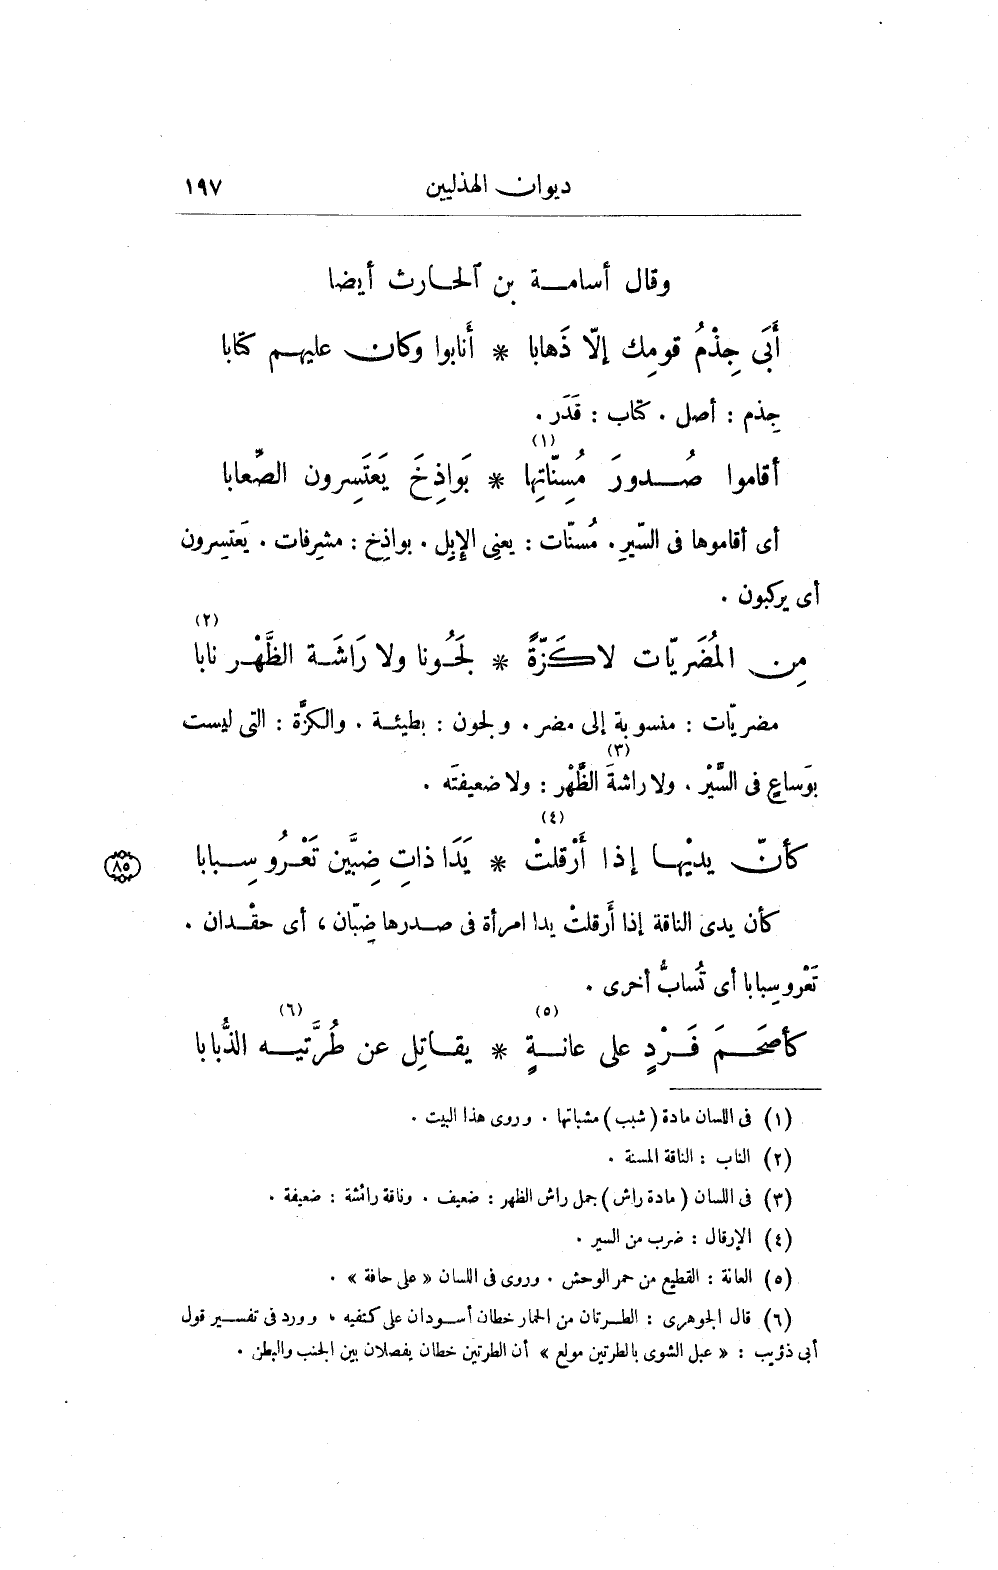 ديوان الهذليين ١٩٧
وقال أسامة بن الحارث أيضا
أَبَى جِذْمُ قومِك إلّا ذَهابا * أَنابوا وكان عليهم كتابا
جِذم : أصل . كتاب : قَدَر .
أقاموا صُدورَ مُسِنّاتِها (١) * بَواذِخَ يَعتَسِرون الصِّعابا
أى أقاموها فى السّيرِ . مُسنّات : يعنِى الإبِل . بواذِخ : مشرِفات . يَعتسِرون
أى يركبون .
مِن المُضَريّات لاكَزّةً * لَجُونا ولا رَاشَة الظَّهْر نابا (٢)
مضريّات : منسوبة إلى مضر . ولجون : بطيئة . والكزَّة : التى ليست
بوَساعٍ فى السَّيْر . ولا راشةَ الظَّهْر (٣) : ولا ضعيفتَه .
كأنّ يديْها إذا أَرْقلتْ (٤) * يَدَا ذاتِ ضِبَّين تَعْرُو سِبابا
٨٥
كأن يدى الناقة إذا أَرقلتْ يدا امرأة فى صدرها ضِبّان ، أى حقْدان .
تَعْرو سِبابا أى تُسابُّ أخرى .
كأصَحَمَ فَرْدٍ على عانةٍ (٥) * يقاتِل عن طُرَّتيه (٦) الذُّبابا
(١) فى اللسان مادة (شبب) مشباتها . وروى هذا البيت .
(٢) الناب : الناقة المسنة .
(٣) فى اللسان (مادة راش) جمل راش الظهر : ضعيف . وناقة رائشة : ضعيفة .
(٤) الإرقال : ضرب من السير .
(٥) العانة : القطيع من حمر الوحش . وروى فى اللسان « على حافة » .
(٦) قال الجوهرى : الطرتان من الحمار خطان أسودان على كتفيه ، وورد فى تفسير قول
أبى ذؤيب : « عبل الشوى بالطرتين مولع » أن الطرتين خطان يفصلان بين الجنب والبطن .